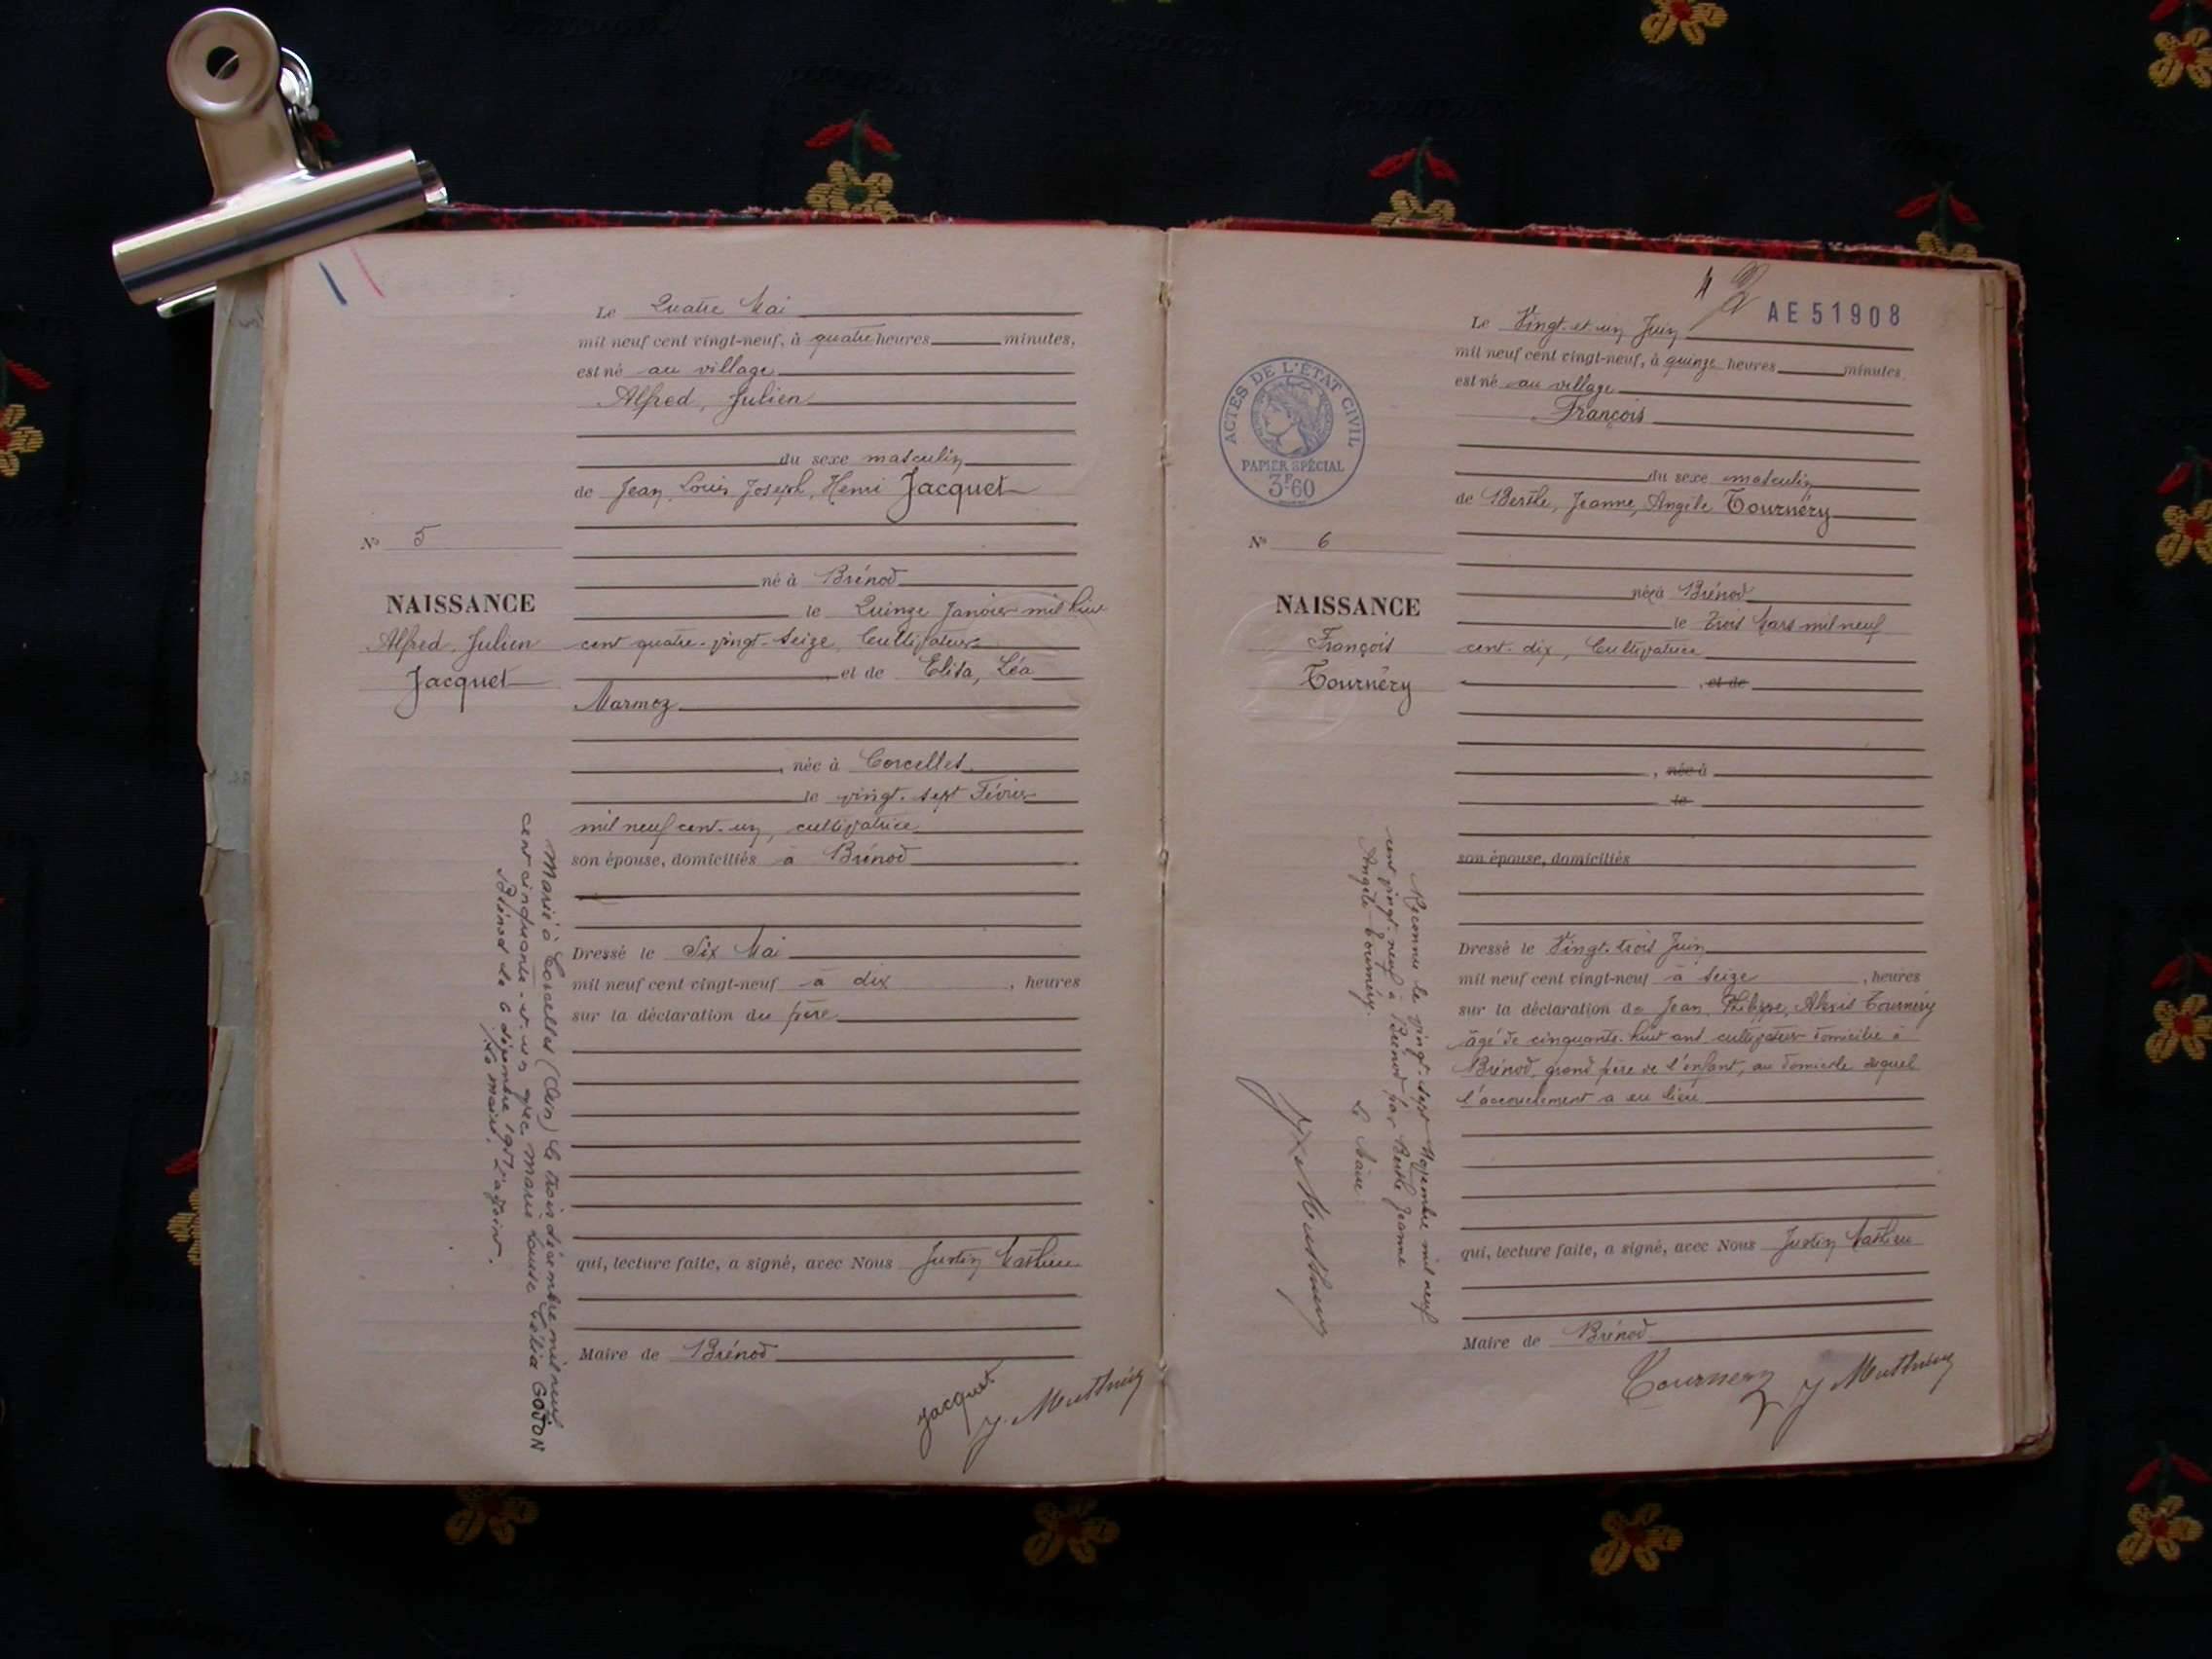 Le Quatre Mai
mil neuf cent vingt-neuf, à quatre heures minutes,
est né au village
Alfred, Julien
du sexe masculin
de Jean, Louis, Joseph, Henri Jacquet
Nº 5
né à Brénod
NAISSANCE
le Quinze Janvier mil huit
Alfred, Julien
cent quatre-vingt-seize, Cultivateur
Jacquet
et de Elisa, Léa
Marmoz
, née à Corcelles
le vingt-sept Février
mil neuf cent-un, cultivatrice
son épouse, domiciliés à Brénod
Dressé le Six Mai
mil neuf cent vingt-neuf à dix , heures
sur la déclaration du père
qui, lecture faite, a signé, avec Nous Justin Mathieu
Maire de Brénod
Jacquet
J. Mathieu
Marié à Corcelles (Ain) le trois décembre mil neuf
cent cinquante-et-un avec Marie Louise Célia GOJON
Brénod le 6 décembre 1951
Le maire,
4
AE 51908
Le Vingt-et-un Juin
mil neuf cent vingt-neuf, à quinze heures minutes
est né au village
François
ACTES DE L'ÉTAT CIVIL
PAPIER SPÉCIAL
3F60
du sexe masculin
de Berthe, Jeanne, Angèle Tournéry
Nº 6
née à Brénod
NAISSANCE
le Trois Mars mil neuf
François
cent-dix, Cultivatrice
Tournéry
, et de
, née à
le
son épouse, domiciliés
Dressé le Vingt-trois Juin
mil neuf cent vingt-neuf à seize , heures
sur la déclaration de Jean, Philippe, Alexis Tournéry
âgé de cinquante-huit ans cultivateur domicilié à
Brénod, grand père de l'enfant, au domicile duquel
l'accouchement a eu lieu
qui, lecture faite, a signé, avec Nous Justin Mathieu
Maire de Brénod
Tournery
J Mathieu
Reconnu le vingt-sept Novembre mil neuf
cent vingt-neuf à Brénod par Berthe Jeanne
Angèle Tournéry.
Le Maire:
J. Mathieu